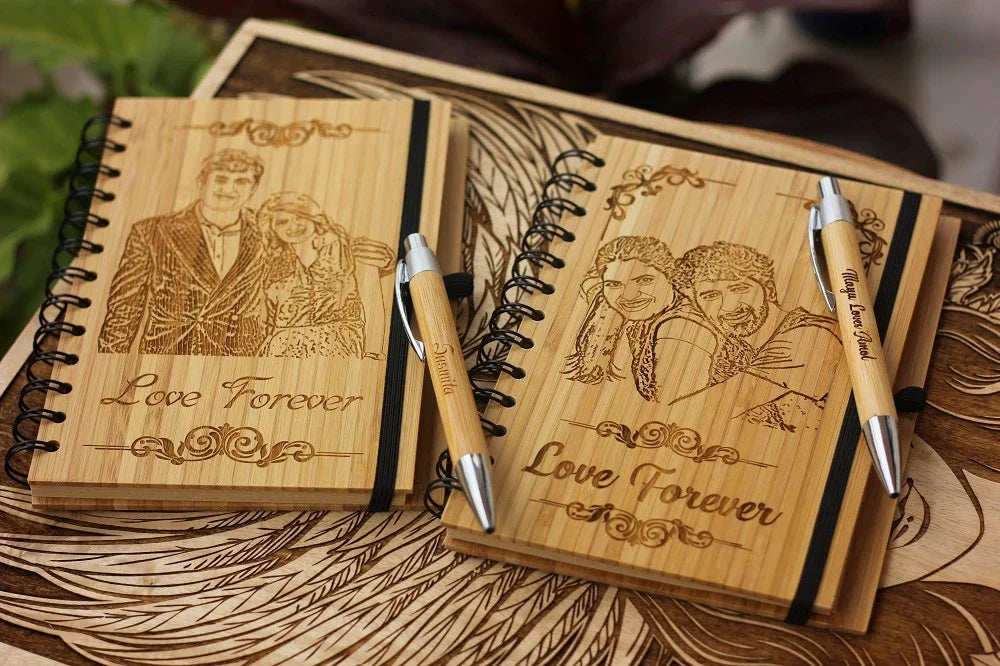 Love Forever
Susmita
Love Forever
Mayu Loves Amol